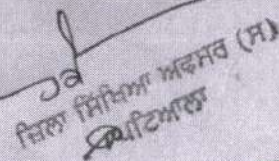 ਜ਼ਿਲਾ ਸਿੱਖਿਆ ਅਫਸਰ (ਸ)
ਪਟਿਆਲਾ